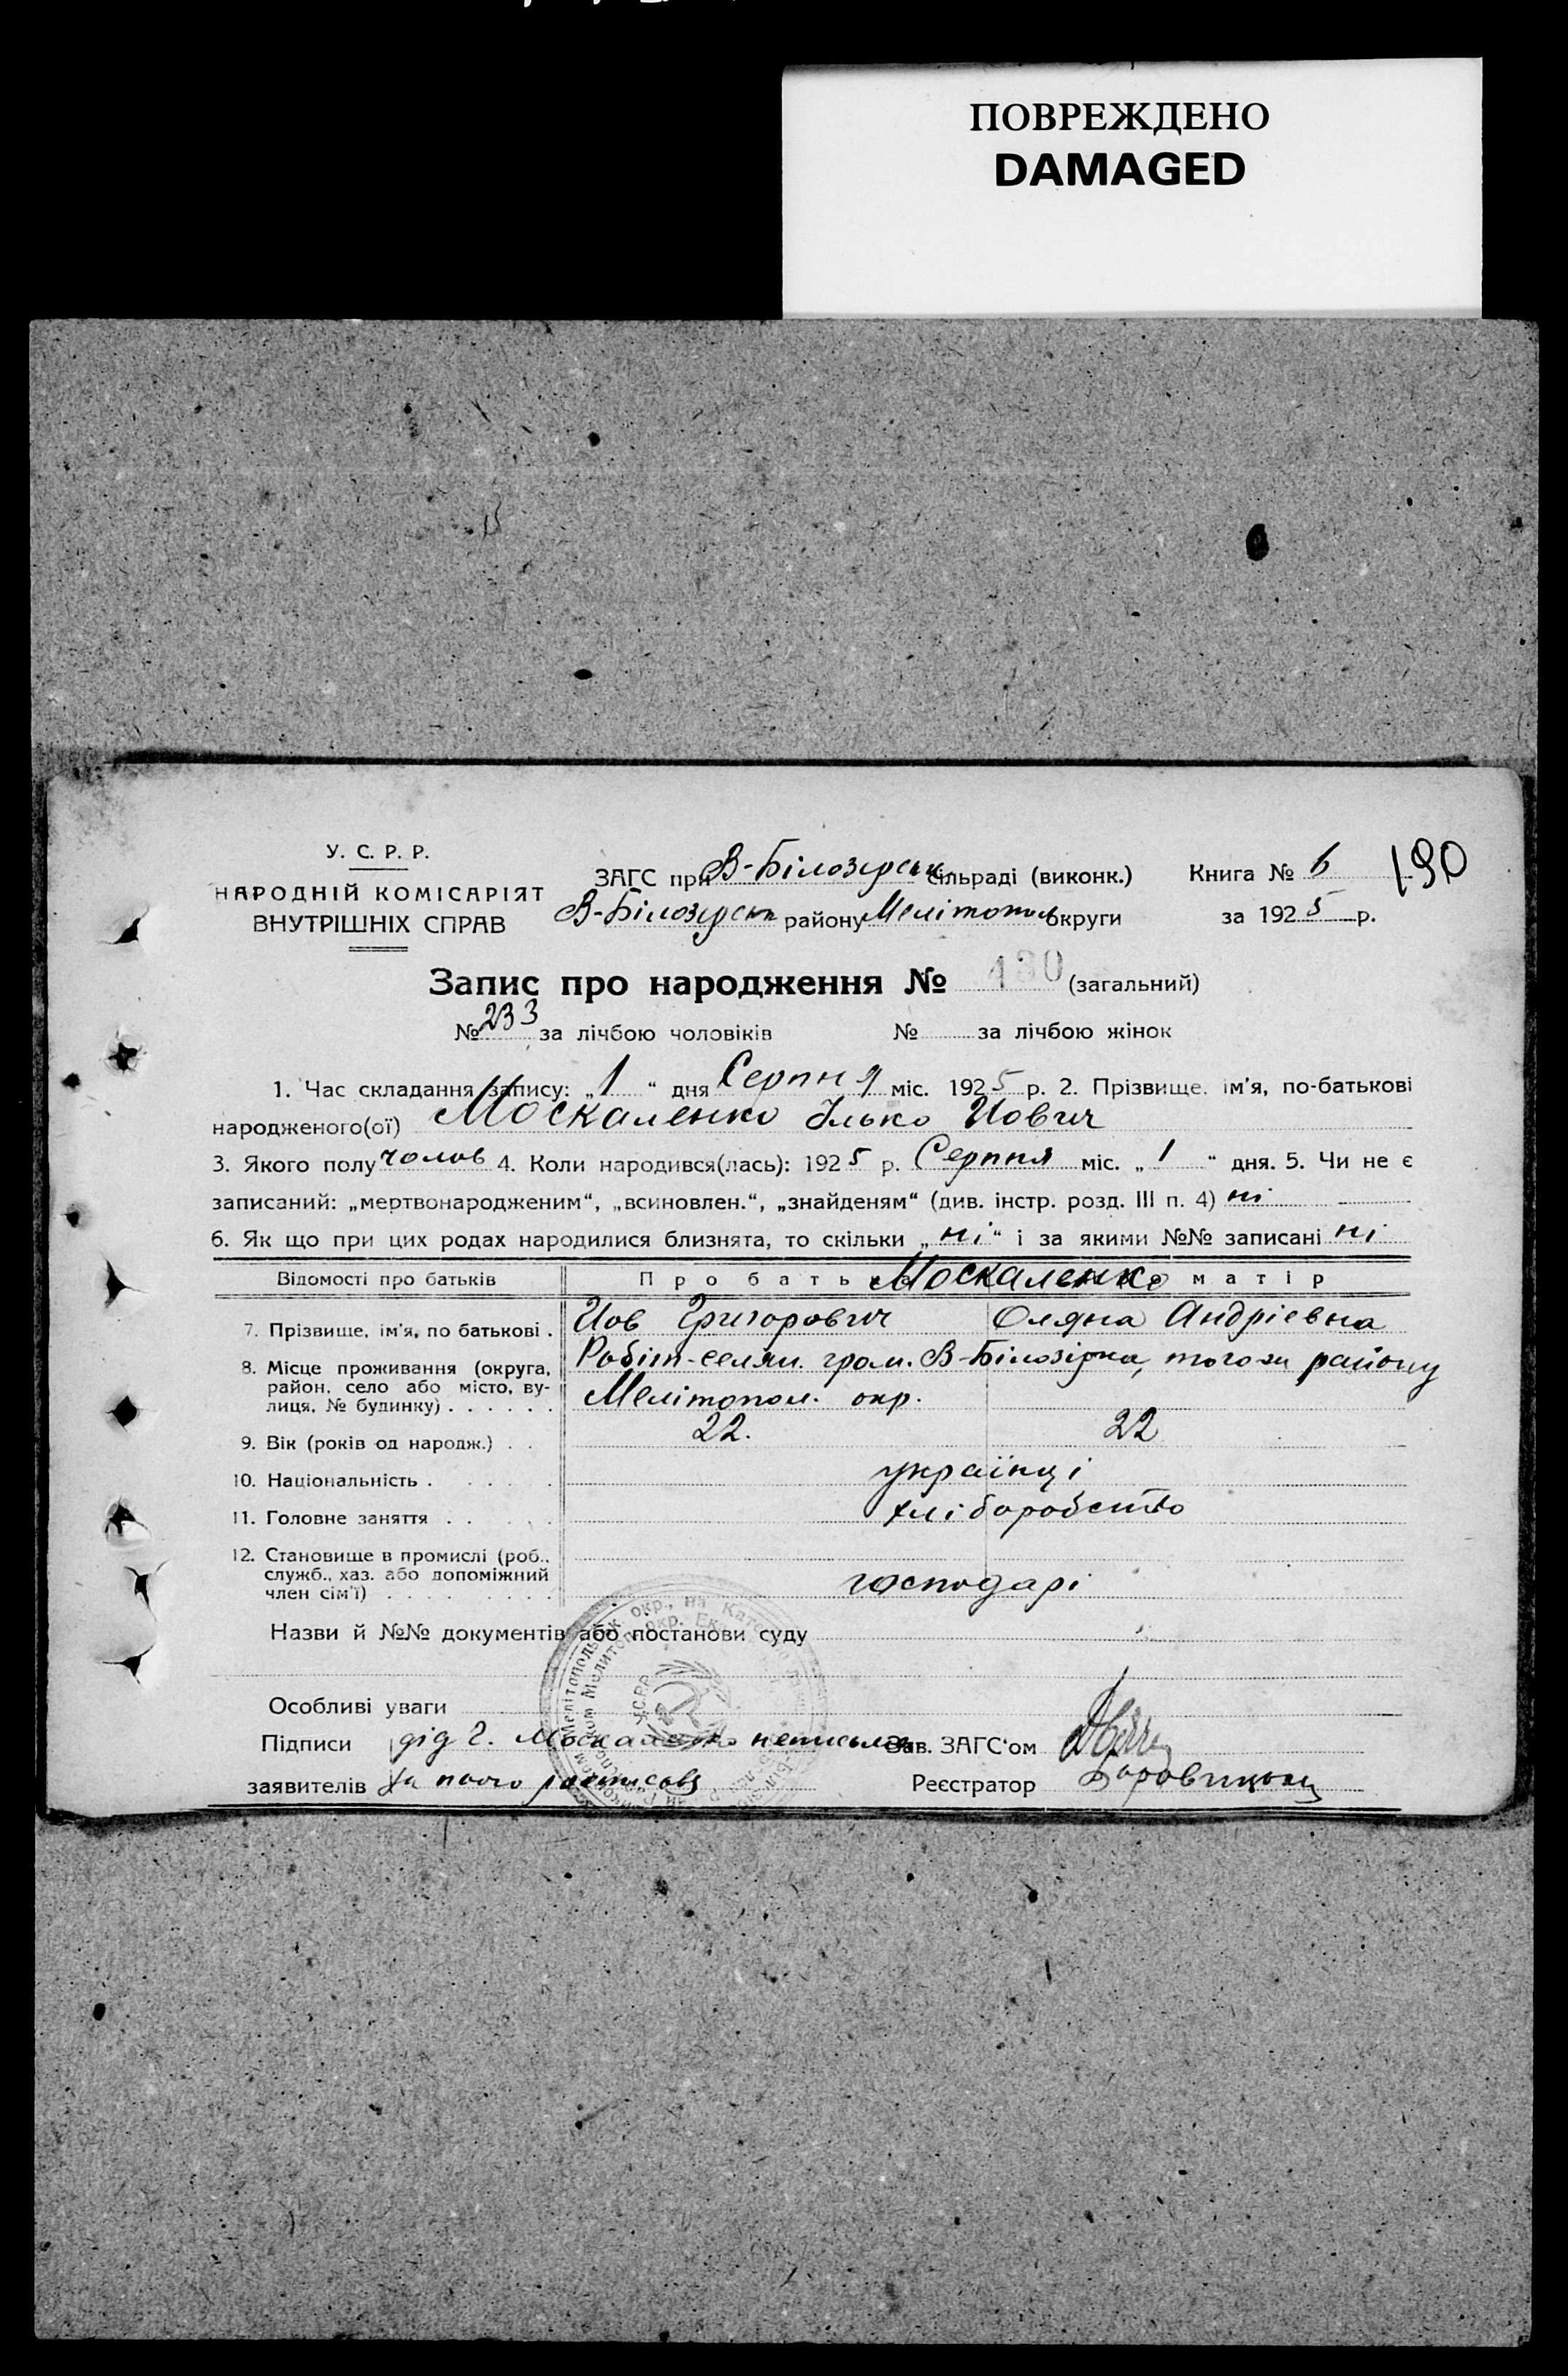 ПОВРЕЖДЕНО
DAMAGED
У. С. Р. Р.
НАРОДНІЙ КОМІСАРІЯТ
ВНУТРІШНІХ СПРАВ
ЗАГС при В-Білозерськ сільраді (виконк.)
В-Білозерськ району Мелітополь округи
Книга № 6
190
за 1925 р.
Запис про народження № 430 (загальний)
№ 233 за лічбою чоловіків № за лічбою жінок
1. Час складання запису: „1“ дня Серпня міс. 1925 р. 2. Прізвище, ім'я, по-батькові
народженого(ої) Москаленко Ілько Йович
3. Якого полу чолов 4. Коли народився(лась): 1925 р. Серпня міс. „1“ дня. 5. Чи не є
записаний: „мертвонародженим“, „всиновлен.“, „знайденям“ (див. інстр. розд. III п. 4) ні
6. Як що при цих родах народилися близнята, то скільки „ні“ і за якими №№ записані ні
Відомості про батьків Про батька Москаленко матір
7. Прізвище, ім'я, по батькові . Йов Григорович Оляна Андрієвна
8. Місце проживання (округа, район, село або місто, вулиця, № будинку) . . . . . . Робіт-селян. гром. В-Білозірка, того-ж району
Мелітопол. окр.
9. Вік (років од народж.) . . 22. 22
10. Національність . . . . . . українці
11. Головне заняття . . . . . хліборобство
12. Становище в промислі (роб.,
служб., хаз. або допоміжний
член сім'ї) . . . . . . . . господарі
Назви й №№ документів або постанови суду
Особливі уваги
Підписи дід г. Москаленко неписьмен Зав. ЗАГС'ом
заявителів За нього Реєстратор